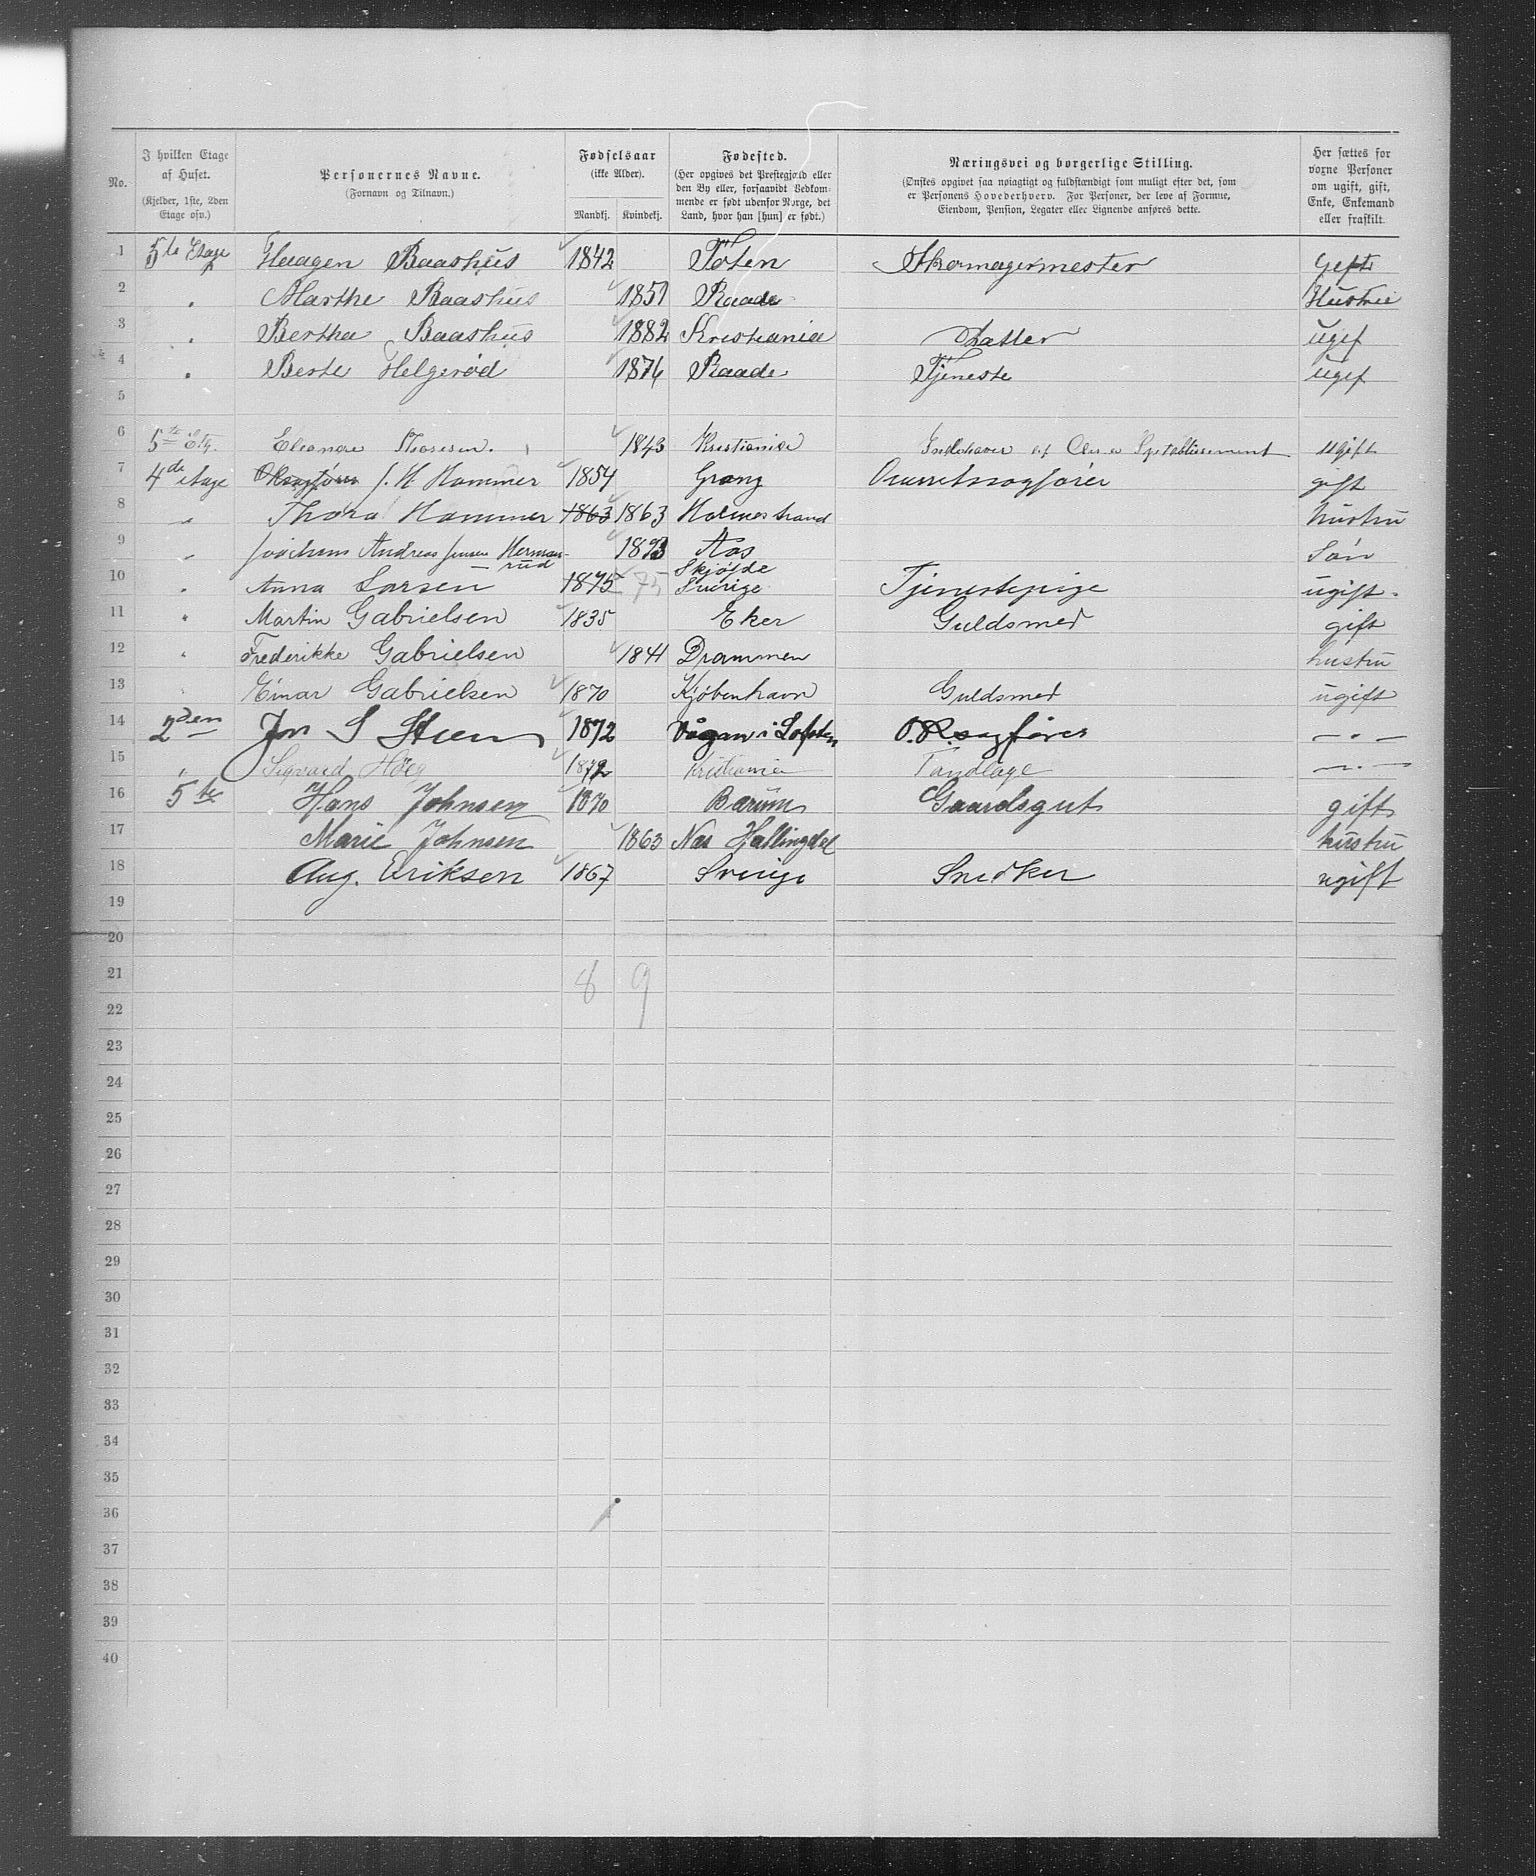 No.
I hvilken Etage af Huset.
(Kjelder, 1ste, 2den Etage osv.)
Personernes Navne.
(Fornavn og Tilnavn.)
Fødselsaar
(ikke Alder).
Mandkj. Kvindekj.
Fødested.
(Her opgives det Prestegjæld eller
den By eller, forsaavidt Vedkom-
mende er født udenfor Norge, det
Land, hvor han [hun] er født.)
Næringsvei og borgerlige Stilling.
(Ønskes opgivet saa nøiagtigt og fuldstændigt som muligt efter det, som
er Personens Hovederhverv. For Personer, der leve af Formue,
Eiendom, Pension, Legater eller Lignende anføres dette.
Her sættes for
voxne Personer
om ugift, gift,
Enke, Enkemand
eller fraskilt.
1 5te Etage Haagen Baashus 1842 Toten Skomagermester Gift
2 " Marthe Baashus 1851 Raade Hustru
3 " Bertha Baashus 1882 Kristiania Datter ugif
4 " Berte Helgerød 1876 Raade Tjeneste ugif
5
6 5te Etg. Eleonore Thoresen. 1843 Kristiania Indehaver af ugift
7 4de etage J. H. Hammer 1854 Grang Overretssagfører gift
8 " Thora Hammer 1863 1863 Holmestrand hustru
9 " Jochum Andreas Jensen Herman-
rud 1893 Aas Søn
10 " Anna Larsen 1875 75 Skjøfde
Sverige Tjenestepige ugift.
11 " Martin Gabrielsen 1835 Eker Guldsmed gift
12 " Frederikke Gabrielsen 1841 Drammen hustru
13 " Einar Gabrielsen 1870 Kjøbenhavn Guldsmed ugift
14 2den Jon S Steen 1872 Vågan i Lofoten O.R.sagfører — " —
15 " Sigvard Höeg 1872 Kristiania Tandlæge — " —
16 5te Hans Johnsen 1870 Bærum Gaardsgut gift
17 Marie Johnsen 1863 Nes Hallingdal hustru
18 Aug. Eriksen 1867 Sverige Snedker ugift
19
20
21 8 9
22
23
24
25
26
27
28
29
30
31
32
33
34
35
36
37
38
39
40